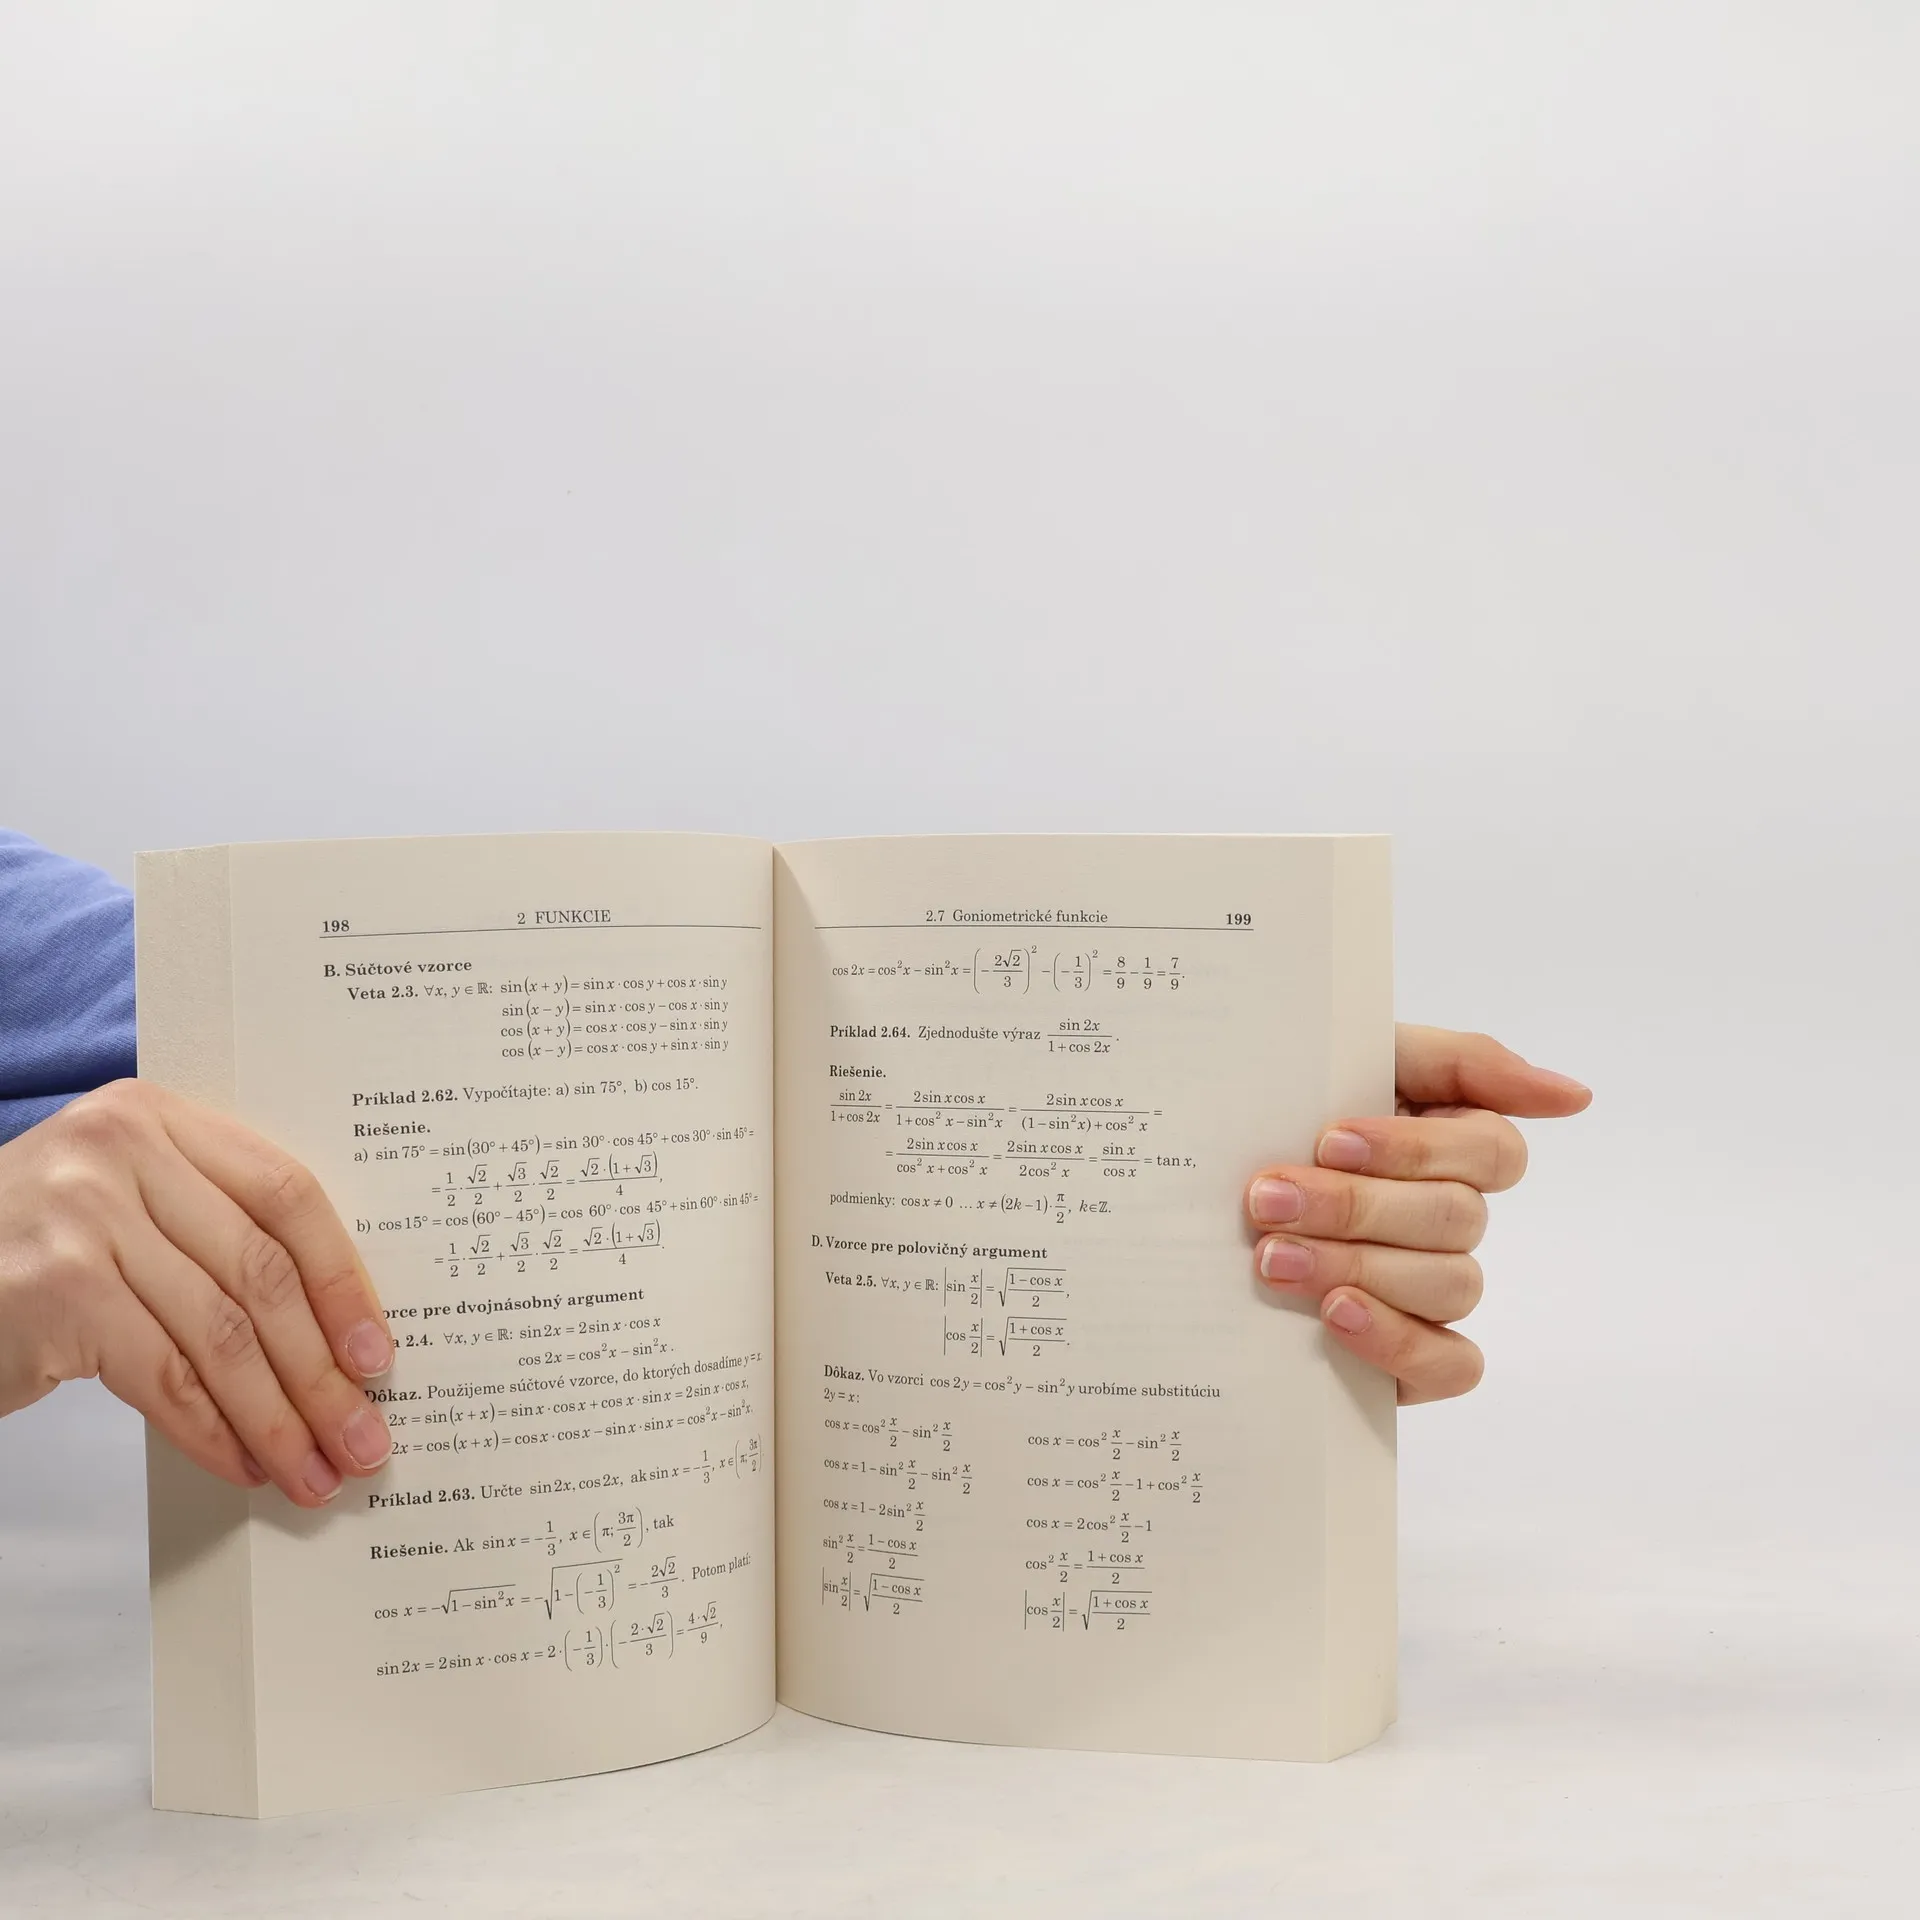 198 2 FUNKCIE
B. Súčtové vzorce
Veta 2.3. ∀x, y ∈ ℝ: sin(x + y) = sin x · cos y + cos x · sin y
sin(x − y) = sin x · cos y − cos x · sin y
cos(x + y) = cos x · cos y − sin x · sin y
cos(x − y) = cos x · cos y + sin x · sin y
Príklad 2.62. Vypočítajte: a) sin 75°, b) cos 15°.
Riešenie.
a) sin 75° = sin(30° + 45°) = sin 30° · cos 45° + cos 30° · sin 45° =
= 1/2 · √2/2 + √3/2 · √2/2 = √2·(1+√3)/4,
b) cos 15° = cos(60° − 45°) = cos 60° · cos 45° + sin 60° · sin 45° =
= 1/2 · √2/2 + √3/2 · √2/2 = √2·(1+√3)/4.
orce pre dvojnásobný argument
a 2.4. ∀x, y ∈ ℝ: sin 2x = 2 sin x · cos x
cos 2x = cos²x − sin²x.
Dôkaz. Použijeme súčtové vzorce, do ktorých dosadíme y = x
2x = sin(x + x) = sin x · cos x + cos x · sin x = 2 sin x · cos x,
2x = cos(x + x) = cos x · cos x − sin x · sin x = cos²x − sin²x.
Príklad 2.63. Určte sin 2x, cos 2x, ak sin x = −1/3, x ∈ (π; 3π/2).
Riešenie. Ak sin x = −1/3, x ∈ (π; 3π/2), tak
cos x = −√(1 − sin²x) = −√(1 − (−1/3)²) = −2√2/3. Potom platí:
sin 2x = 2 sin x · cos x = 2 · (−1/3) · (−2·√2/3) = 4·√2/9,
2.7 Goniometrické funkcie 199
cos 2x = cos²x − sin²x = (−2√2/3)² − (−1/3)² = 8/9 − 1/9 = 7/9.
Príklad 2.64. Zjednodušte výraz sin 2x/(1 + cos 2x).
Riešenie.
sin 2x/(1 + cos 2x) = 2 sin x cos x/(1 + cos² x − sin²x) = 2 sin x cos x/((1 − sin²x) + cos² x) =
= 2 sin x cos x/(cos² x + cos² x) = 2 sin x cos x/(2 cos² x) = sin x/cos x = tan x,
podmienky: cos x ≠ 0 … x ≠ (2k − 1) · π/2, k∈ℤ.
D. Vzorce pre polovičný argument
Veta 2.5. ∀x, y ∈ ℝ: |sin x/2| = √((1 − cos x)/2),
|cos x/2| = √((1 + cos x)/2).
Dôkaz. Vo vzorci cos 2y = cos²y − sin²y urobíme substitúciu
2y = x:
cos x = cos² x/2 − sin² x/2 cos x = cos² x/2 − sin² x/2
cos x = 1 − sin² x/2 − sin² x/2 cos x = cos² x/2 − 1 + cos² x/2
cos x = 1 − 2 sin² x/2 cos x = 2 cos² x/2 − 1
sin² x/2 = (1 − cos x)/2 cos² x/2 = (1 + cos x)/2
|sin x/2| = √((1 − cos x)/2) |cos x/2| = √((1 + cos x)/2)